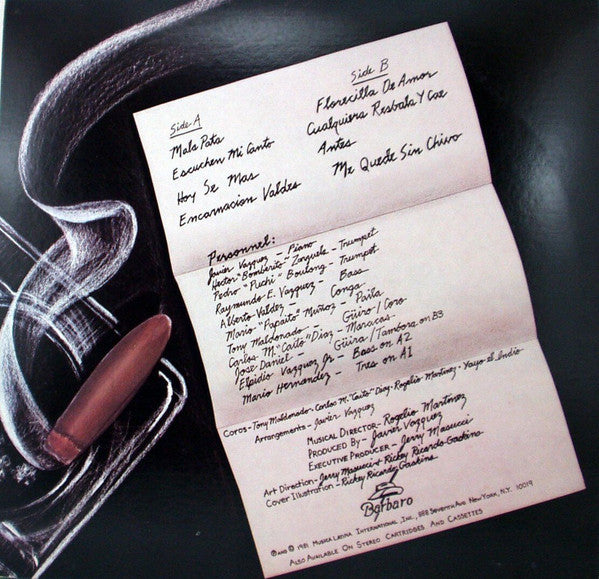 Side A
Mala Pata
Escuchen Mi Canto
Hoy Se Mas
Encarnacion Valdes
Side B
Florecilla De Amor
Cualquiera Resbala Y Cae
Antes
Me Quede Sin Chivo
Personnel:
Javier Vazquez - Piano
Hector "Bomberito" Zarzuela - Trumpet
Pedro "Puchi" Boulong - Trumpet
Raymundo E. Vazquez - Bass
Alberto Valdez - Conga
Mario "Papaito" Muñoz - Paila
Tony Maldonado - Güiro / Coro
Carlos M. "Caito" Diaz - Maracas
Jose Daniel - Güira / Tambora on B3
Elpidio Vazquez Jr. - Bass on A2
Mario Hernandez - Tres on A1
Coros - Tony Maldonado - Carlos M. "Caito" Diaz - Rogelio Martinez - Yayo el Indio
Arrangements - Javier Vazquez
Musical Director - Rogelio Martinez
Produced By - Javier Vazquez
Executive Producer - Jerry Masucci
Art Direction - Jerry Masucci & Rickey Ricardo Gaskins
Cover Illustration - Rickey Ricardo Gaskins
Barbaro
℗ and © 1981 Musica Latina International, Inc., 888 Seventh Ave New York, N.Y. 10019
Also Available On Stereo Cartridges And Cassettes